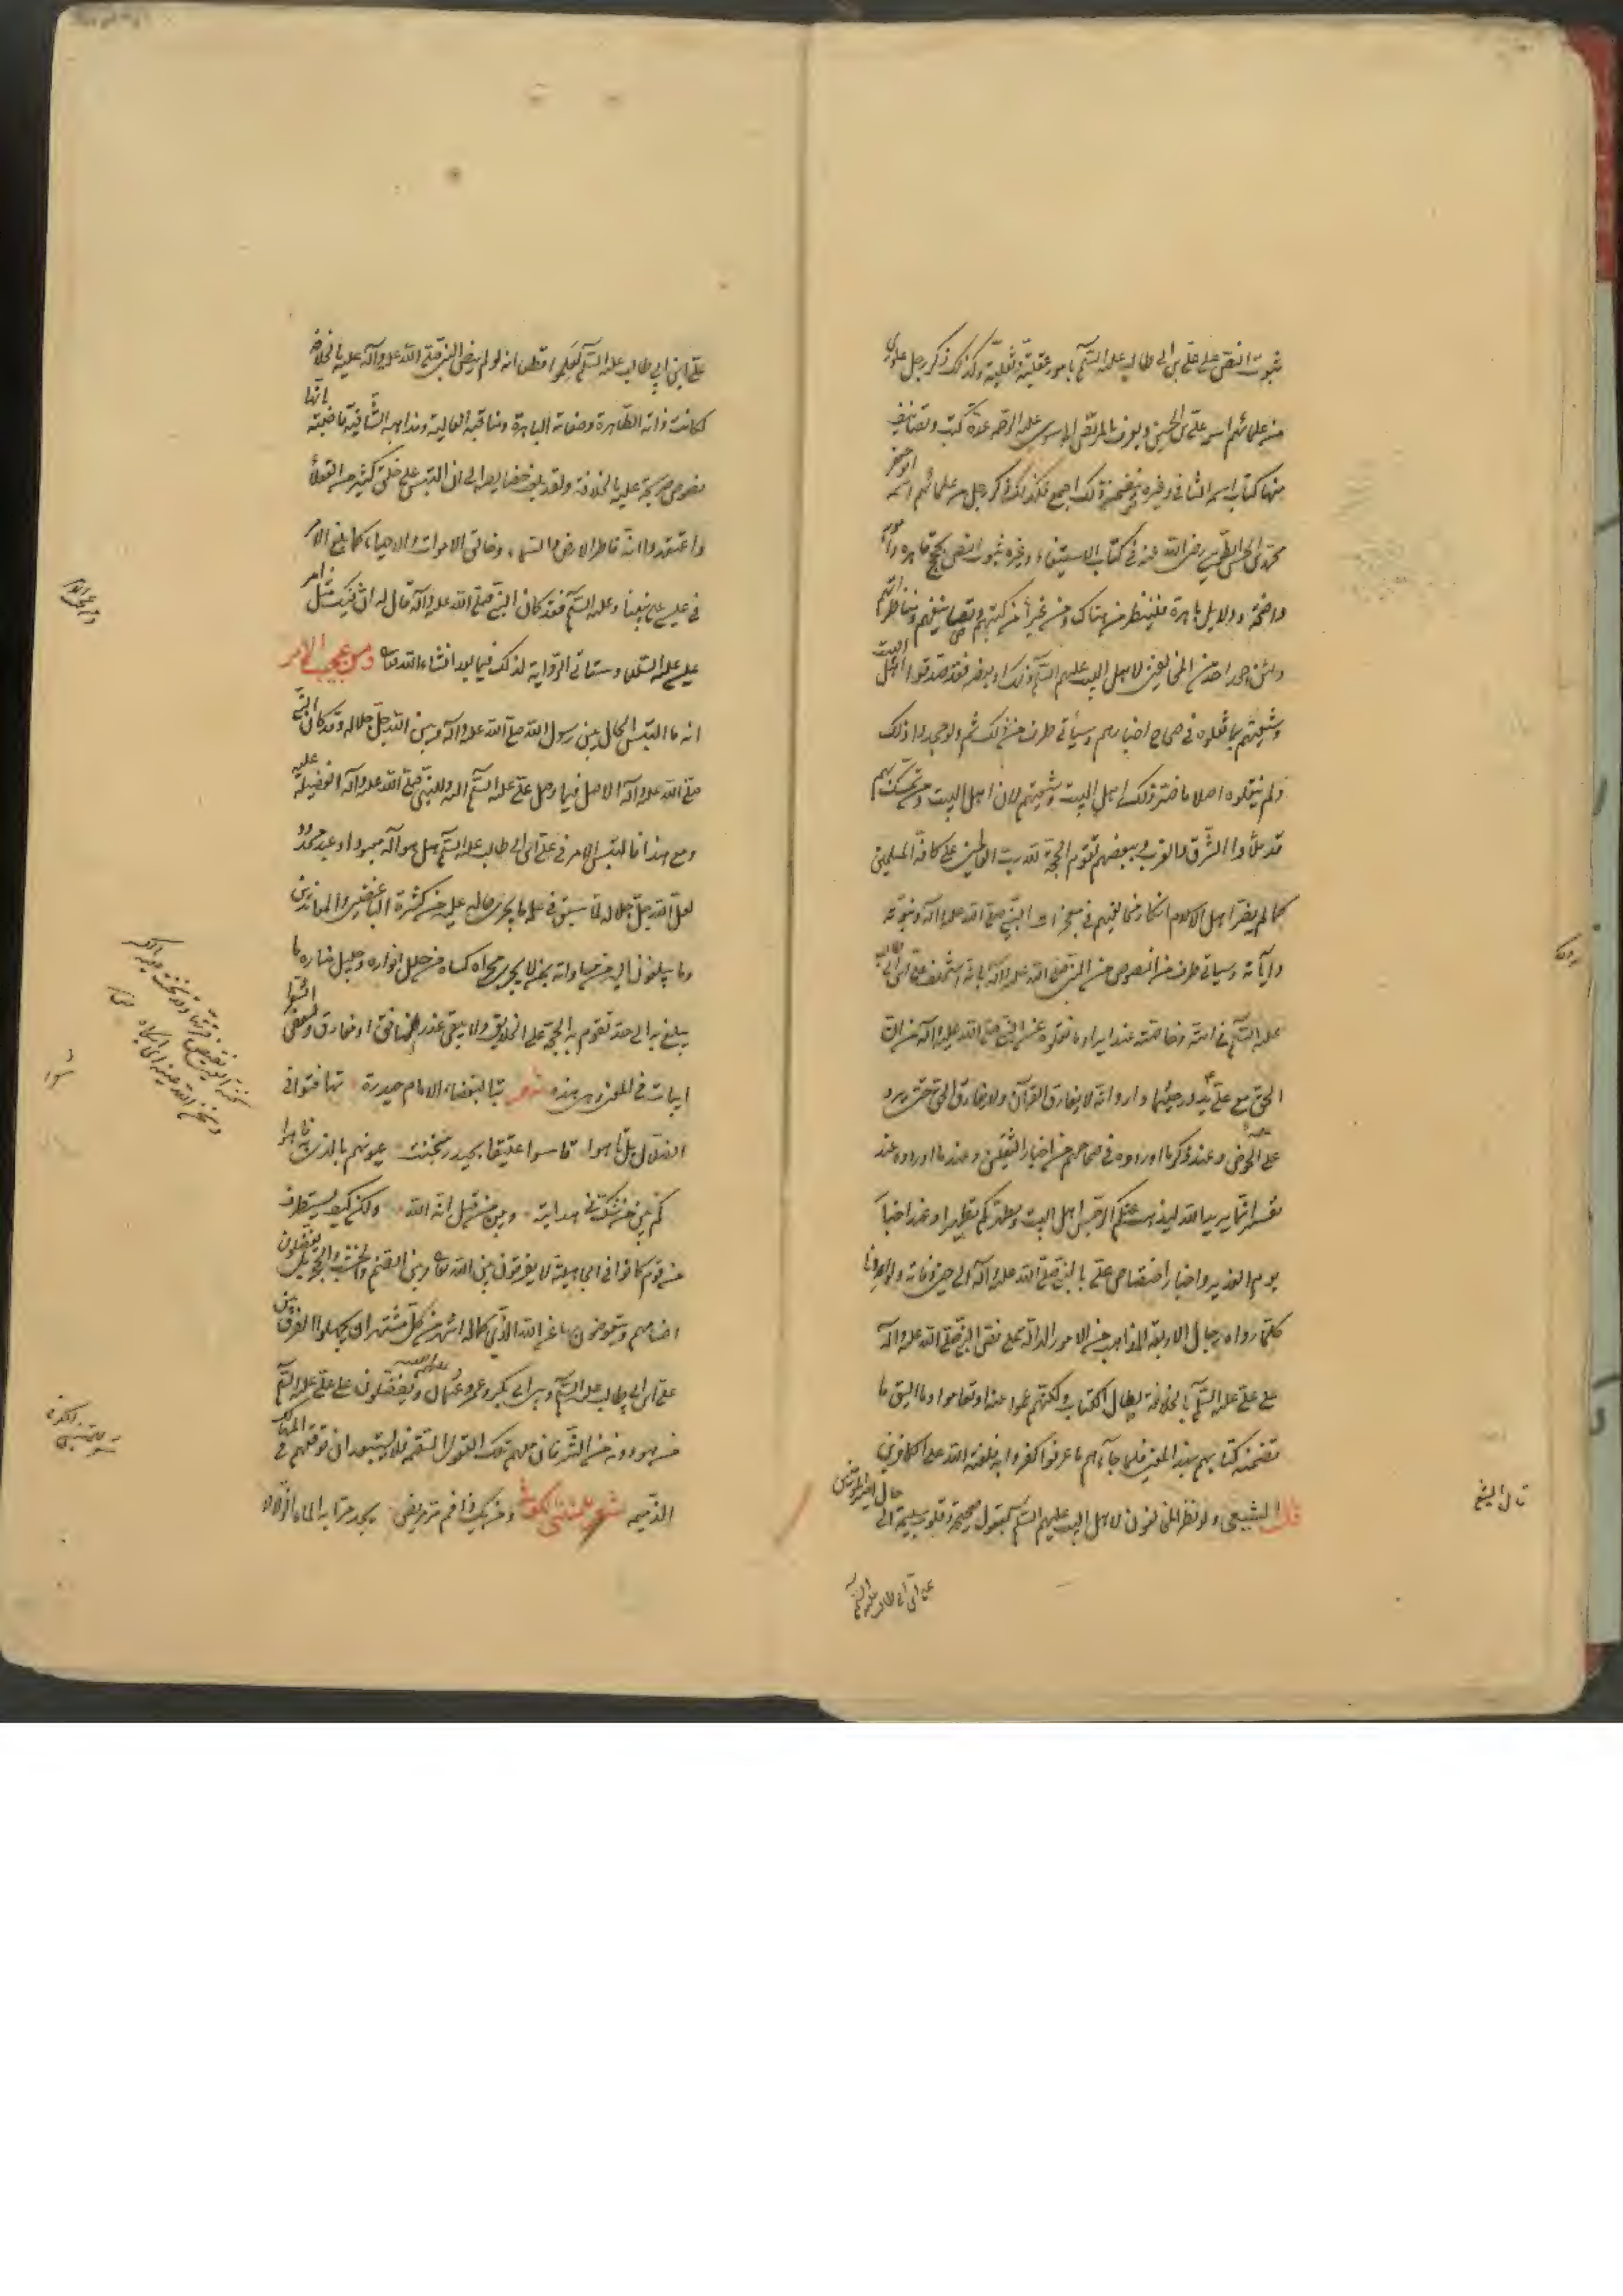 ثبوت النص على علي بن ابى طالب عليه السلم بامور عقلية ونقلية وكذلك ذكر رجل علوى
من علمائهم اسمه على بن الحسين ويعرف بالمرتضى الموسوى عليه الرحمة عدة كتب وتصانيف
منها كتاب اسمه الشافى وغيره يتضمن ذلك اجمع وكذلك ذكر رجل من علمائهم اسمه ابو جعفر
محمد بن الحسن الطوسى رضى الله عنه فى كتاب الاستيفاء وغيره ثبوت النص بحجج قاهرة وامور
واضحة ودلايل باهرة فلينظر من هناك ومن غيرها من كتبهم وتصانيفهم ومناظراتهم
ولئن جحد احد من المخالفين لاهل البيت عليهم السلم ذلك او بعضه فقد صدقوا اهل البيت
وشيعتهم بما نقلوه فى صحاح اخبارهم وسيأتى طرف من ذلك ثم ولو جحدوا ذلك
ولم ينقلوه اصلا ما ضر ذلك اهل البيت وشيعتهم لان اهل البيت ومن تمسك بهم
قد ملأوا الشرق والغرب وببعضهم تقوم الحجة لله رب العالمين على كافة المسلمين
كما لم يضر اهل الاسلام انكار مخالفيهم فى معجزات النبى صلى الله عليه وآله ونبوته
وآياته وسيأتى طرف من النصوص من النبى صلى الله عليه وآله بانه استخلف على بن ابى طالب
عليه السلم فى امته وخاصته عند ايراد ما نقلوه عن النبى صلى الله عليه وآله من ان
الحق مع على يدور حيثما دار وانه لا يفارق القرآن ولا يفارق الحق حتى يرد
على الحوض وعند ذكر ما اوردوه فى صحاحهم من اخبار الثقلين وعند ما اوردوه عند
تفسير انما يريد الله ليذهب عنكم الرجس اهل البيت ويطهركم تطهيرا وعند اخبار
يوم الغدير واخبار اختصاص على بالنبى صلى الله عليه وآله الى حين وفاته
كلما رواه رجال الاربعة المذاهب من الامور الدالة على نص النبى صلى الله عليه وآله
على على عليه السلم بالخلافة يطال الكتاب ولكنهم عموا عنها وتعاموا وما اليق ما
تضمنه كتابهم بهذا المعنى فلما جآءهم ما عرفوا كفروا به فلعنة الله على الكافرين
قال الشيعى ولو نظر المخالفون لاهل البيت عليهم السلم بعقول صحيحة وقلوب سليمة الى
قال الشيخ
على ابن ابى طالب عليه السلم لعلموا قطعا انه لو لم ينص النبى صلى الله عليه وآله عليه بالخلافة
لكانت ذاته الطاهرة وصفاته الباهرة ومناقبه العالية ومذاهبه الشافية قاضية بانها
نصوص صريحة عليه بالخلافة ولقد بلغت خصايصه الى ان التبس على خلق كثير من العقلاء
واعتقدوا انه فاطر الارض والسماء وخالق الاموات والاحياء كما بلغ الامر
فى عيسى على نبينا وعليه السلم فقد كان النبى صلى الله عليه وآله قال له ان فيك مثل
عيسى عليه السلام وستأتى الرواية لذلك فيما بعد انشاء الله تعالى ومن عجيب الامر
انه ما التبس الحال بين رسول الله صلى الله عليه وآله وبين الله جل جلاله وقد كان النبى
صلى الله عليه وآله الاصل فيما وصل على عليه السلم اليه وللنبى صلى الله عليه وآله الفضيلة عليه
ومع هذا فالتبس الامر فى على بن ابى طالب عليه السلم هل هو اله معبود او عبد محمود
لعل الله جل جلاله لما سبق فى علمه ما يجرى حاله عليه من كثرة الباغضين والمعاندين
وما يبلغون اليه
يبلغ به الى حد تقوم به الحجة على الخلايق ولا يبقى عذر لمنافق او مفارق ولبعض الشعراء
ابيات فى المعنى وهى هذه شعر تبا لنصاب الامام حيدرة تهافتوا فى
الضلال بل تاهوا قاسوا عتيقا بحيدر سخنت عيونهم بالذى به فاهوا
كم بين من شك فى هدايته وبين من قيل انه الله ولكن كيف يستطرف
من قوم كانوا فى الجاهلية لا يفرقون بين الله تعالى وبين الصنم والخشب والحجر بل يفضلون
اصنامهم ويتعوضون بها عن الله الذى كماله اشهر من كل مشتهر ان يجهلوا الفرق بين
على بن ابى طالب عليه السلم وبين ابى بكر وعمر وعثمان ويفضلون على على عليه السلم
من هو دونه من الشرف فان مهم تلك العقول السقيمة فلا يستبعد ان توقعهم فى المهالك
الذميمة شعر للمتنبى الكوفى ومن يك ذا فم مر مريض يجد مرا به الماء الزلالا